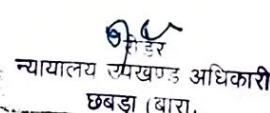 रीडर
न्यायालय उपखण्ड अधिकारी
छबड़ा (बारा.